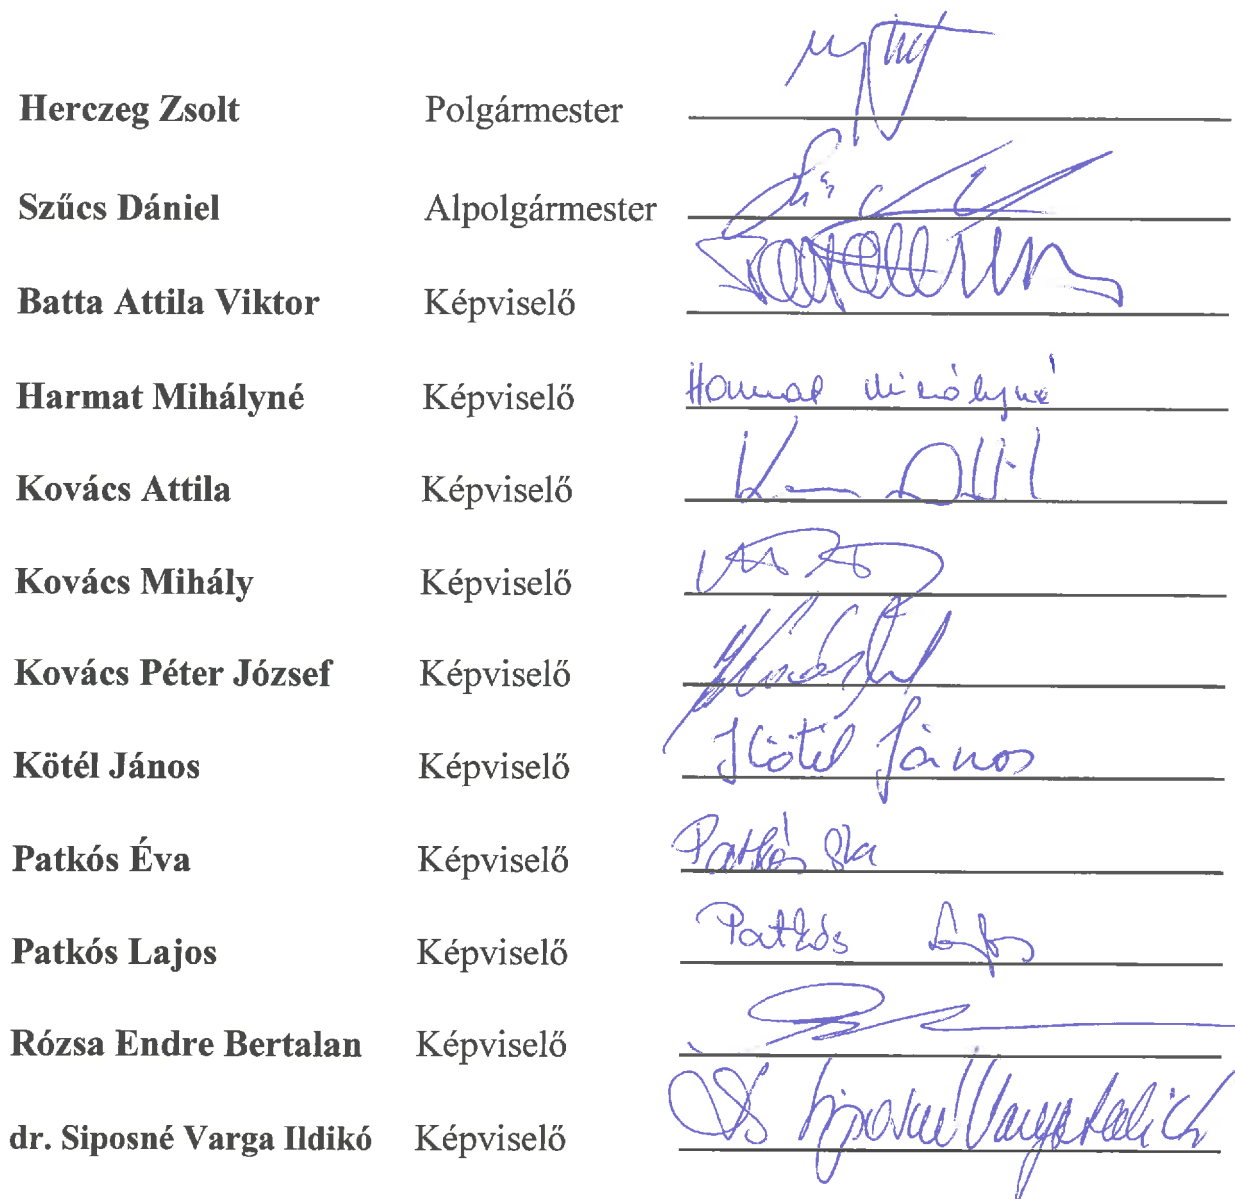 Herczeg Zsolt Polgármester
Szűcs Dániel Alpolgármester
Batta Attila Viktor Képviselő
Harmat Mihályné Képviselő Harmat Mihályné
Kovács Attila Képviselő
Kovács Mihály Képviselő
Kovács Péter József Képviselő
Kötél János Képviselő Kötél János
Patkós Éva Képviselő Patkós Éva
Patkós Lajos Képviselő Patkós Lajos
Rózsa Endre Bertalan Képviselő
dr. Siposné Varga Ildikó Képviselő